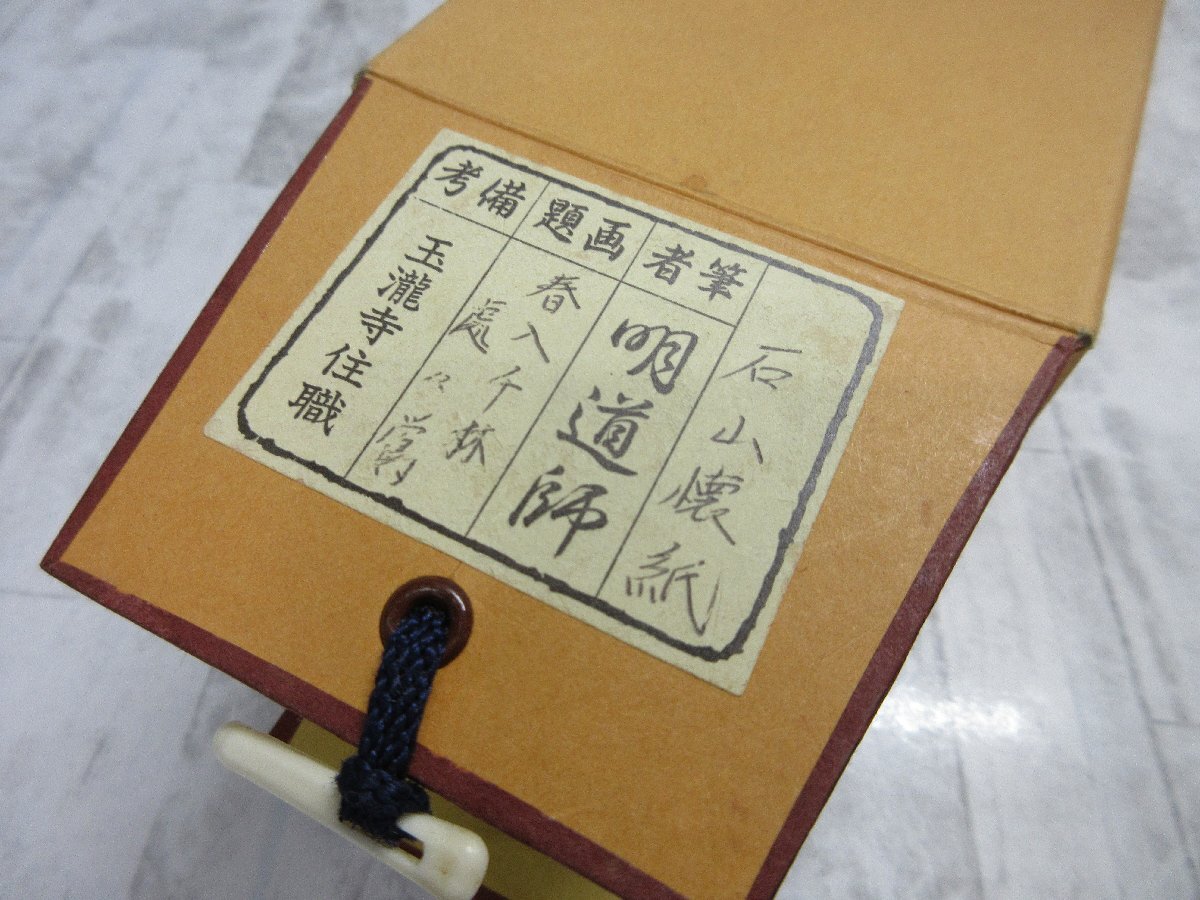 石山懐紙
筆者
明道師
画題
春入千林
處々鴬
備考
玉瀧寺住職